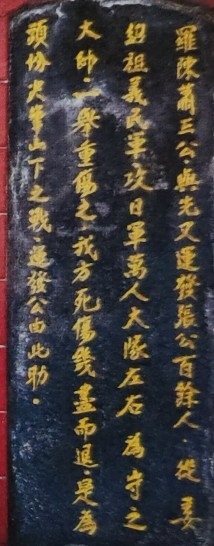 羅陳蕭三公，與先父運發張公百餘人，從姜
紹祖義民軍攻日軍萬人大隊左右，為守之
大帥，一舉重傷之，我方死傷幾盡而退，是為
頭份尖筆山下之戰，運發公由此助。